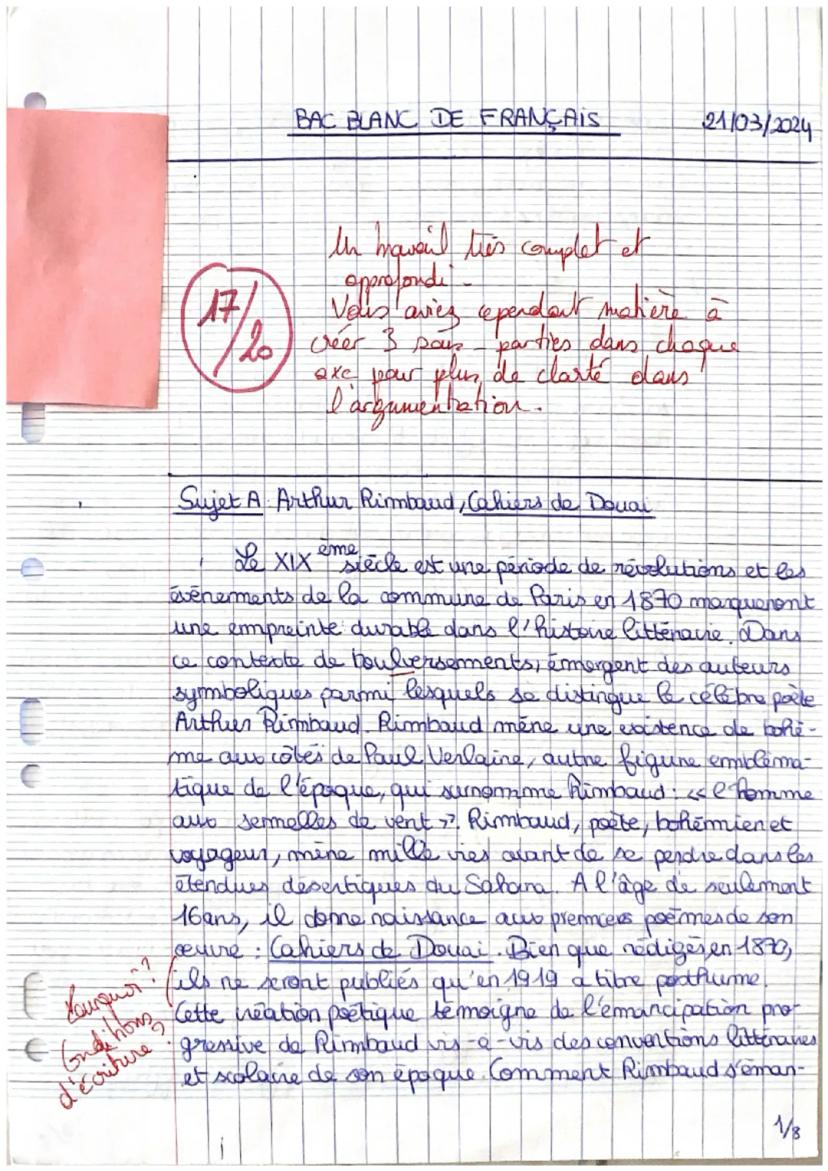 BAC BLANC DE FRANÇAIS 21/03/2024
17/20
Un travail très complet et
approfondi.
Vous aviez cependant matière à
créer 3 sous-parties dans chaque
axe pour plus de clarté dans
l'argumentation.
Sujet A : Arthur Rimbaud, Cahiers de Douai
Le XIXème siècle est une période de révolutions et les
évènements de la commune de Paris en 1870 marqueront
une empreinte durable dans l'histoire littéraire. Dans
ce contexte de boulversements, émergent des auteurs
symboliques parmi lesquels se distingue le célèbre poète
Arthur Rimbaud. Rimbaud mène une existence de bohè-
me aux côtés de Paul Verlaine, autre figure embléma-
tique de l'époque, qui surnomme Rimbaud : « l'homme
aux semelles de vent ». Rimbaud, poète, bohémien et
voyageur, mène mille vies avant de se perdre dans les
étendues désertiques du Sahara. A l'âge de seulement
16ans, il donne naissance aux premiers poèmes de son
œuvre : Cahiers de Douai. Bien que rédigés en 1870,
ils ne seront publiés qu'en 1919 à titre posthume.
Cette création poétique témoigne de l'émancipation pro-
gressive de Rimbaud vis-à-vis des conventions littéraires
et scolaire de son époque. Comment Rimbaud s'éman-
Pourquoi ?
Conditions
d'écriture ?
1/8